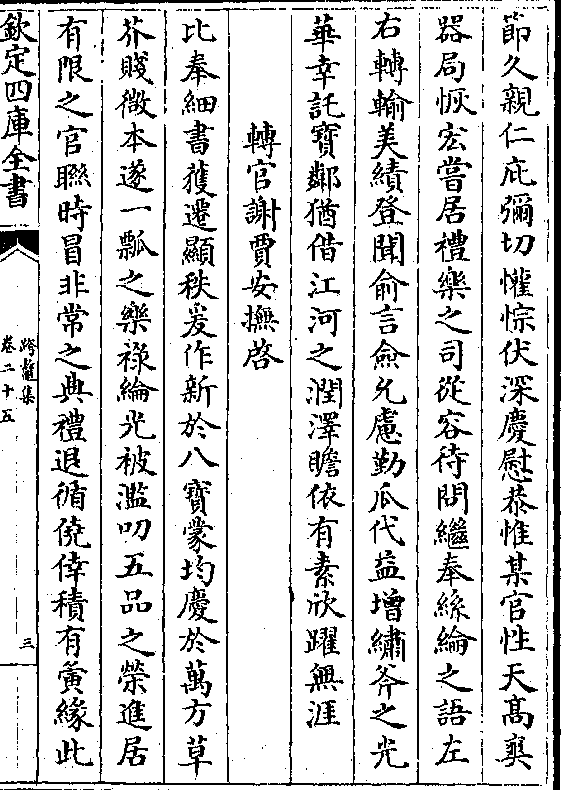 節久親仁庇彌切懽悰伏深慶慰恭惟某官性天髙爽
器局恢宏嘗居禮樂之司從容待問繼奉絲綸之語左
右轉輸美績登聞俞言僉允慮勤瓜代益增繡斧之光
華幸託寶鄰猶借江河之潤澤瞻依有素欣躍無涯
轉官謝賈安撫啓
比奉細書獲遷顯秩爰作新於八寶蒙均慶於萬方草
芥賤微本遂一瓢之樂祿綸光被濫叨五品之榮進居
有限之官聯時冒非常之典禮退循僥倖積有夤緣此
欽定四庫全書
跨鼇集
卷二十五
三